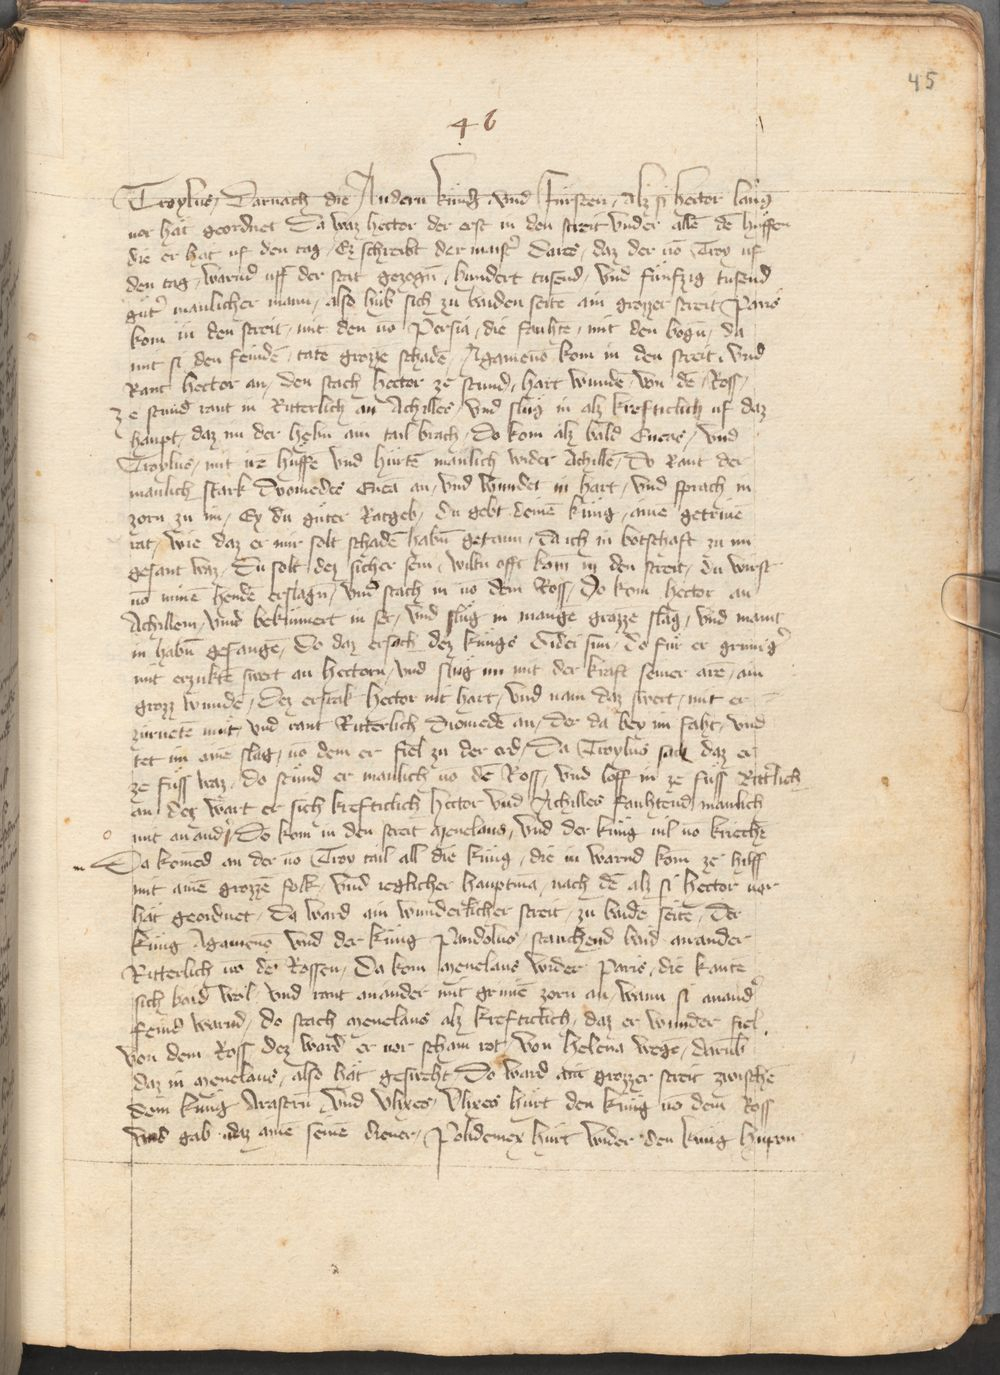 45
46
Troylus, Darnach die Andern küng vnd Fürsten, Alz si hector lang
vor hät geordnet Da waz hector der erst in den streit vnder allē dē hüffen
die er hät uf den tag, Ez schreibt der maist' Dares, daz der vō Troy uf
den tag, warnd uff der stat gezogn̄, hundert tusend, vnd fünfzig tusend
güt' manlicher mann, also hüb sich zu baiden seite ain grozzer streit Paris
kom in den streit, mit den vō Persia, die fauhte, mit den bogn̄, da
mit si den feindē, tatē grozze schadē, Agamenō kom in den streit, vnd
Rant hector an, den stach hector ze stund, hart wundē, von dē Ross,
ze stund rant in Ritterlich an Achilles, vnd slüg in alz krefticlich uf daz
haupt, daz im der helm ain tail brach, Do kom alz bald Eneas, vnd
Troylus, mit irē hüffe vnd hürtē manlich wider Achillē, Do Rant der
manlich stark Dyomedes Eneā an, vnd wundet in hart, vnd sprach in
zorn zu im, Ey du güter Ratgeb, du gebt deinē küng, ainē getriwē
rat, wie daz er mir solt schadē habn̄ getann, da ich in botschaft zu im
gesant waz, Du solt dez sicher sein, wiltu offt kom̄ in den streit, du wirst
vō minē hendē erslagn̄, vnd stach in vō dem Ross, Do kom hector an
Achillem, vnnd bekümert in ser, vnd slüg in mange grozze slag, vnd maint
in habn̄ gefangē, Do daz ersach dez küngs sun, do für er grimig'
mit erzukte swert an hectorn, vnd slug im mit der kraft seiner arē, ain
grozz wundē, Dez erschrak hector nit hart, vnd nam daz swert, mit er
zürnetē müt, vnd rant Ritterlich Diomedē an, der da bey im faht, vnd
tet im ainē slag, vō dem er fiel zu der erd, Da Troylus sach daz er
ze füss waz, do stünd er manlich vō dē Ross, vnd loff in ze füss Ritt'lich
an, der wart er sich krefticlich hector vnd Achilles fauhtend manlich
mit anand', Do kom in den streit Menelaus, vnd der küng vil vō kriechē
Da komed an der vō Troy tail all die küng, die in warnd kom̄ ze hilff
mit ainē grozzē folk, vnd ieglicher hauptmā, nach dē alz si hector vor
hät geordnet, Da ward ain wunderlicher streit, zu baidē seitē, Der
küng Agamenō vnd der küng Pandolus, stauchend baid anander
Ritterlich vō dē Rossen, Da kom Menelaus wider Paris, die kante
sich baid wol, vnd rant anander mit grimē zorn an, wann si anand'
feind warnd, do stach Menelaus alz krefticlich, daz er wunder fiel
von dem Ross dez ward er vor scham rot, von helena wege, darūb
daz in Menelaus, also hät geswecht Do ward ain grozzer streit zwischē
dem küng Arastrū vnd Vlixes, Vlixes hürt den küng vō dem Ross
vnd gab daz ainē seinē diener, Polidemex hürt wider den küng hupon